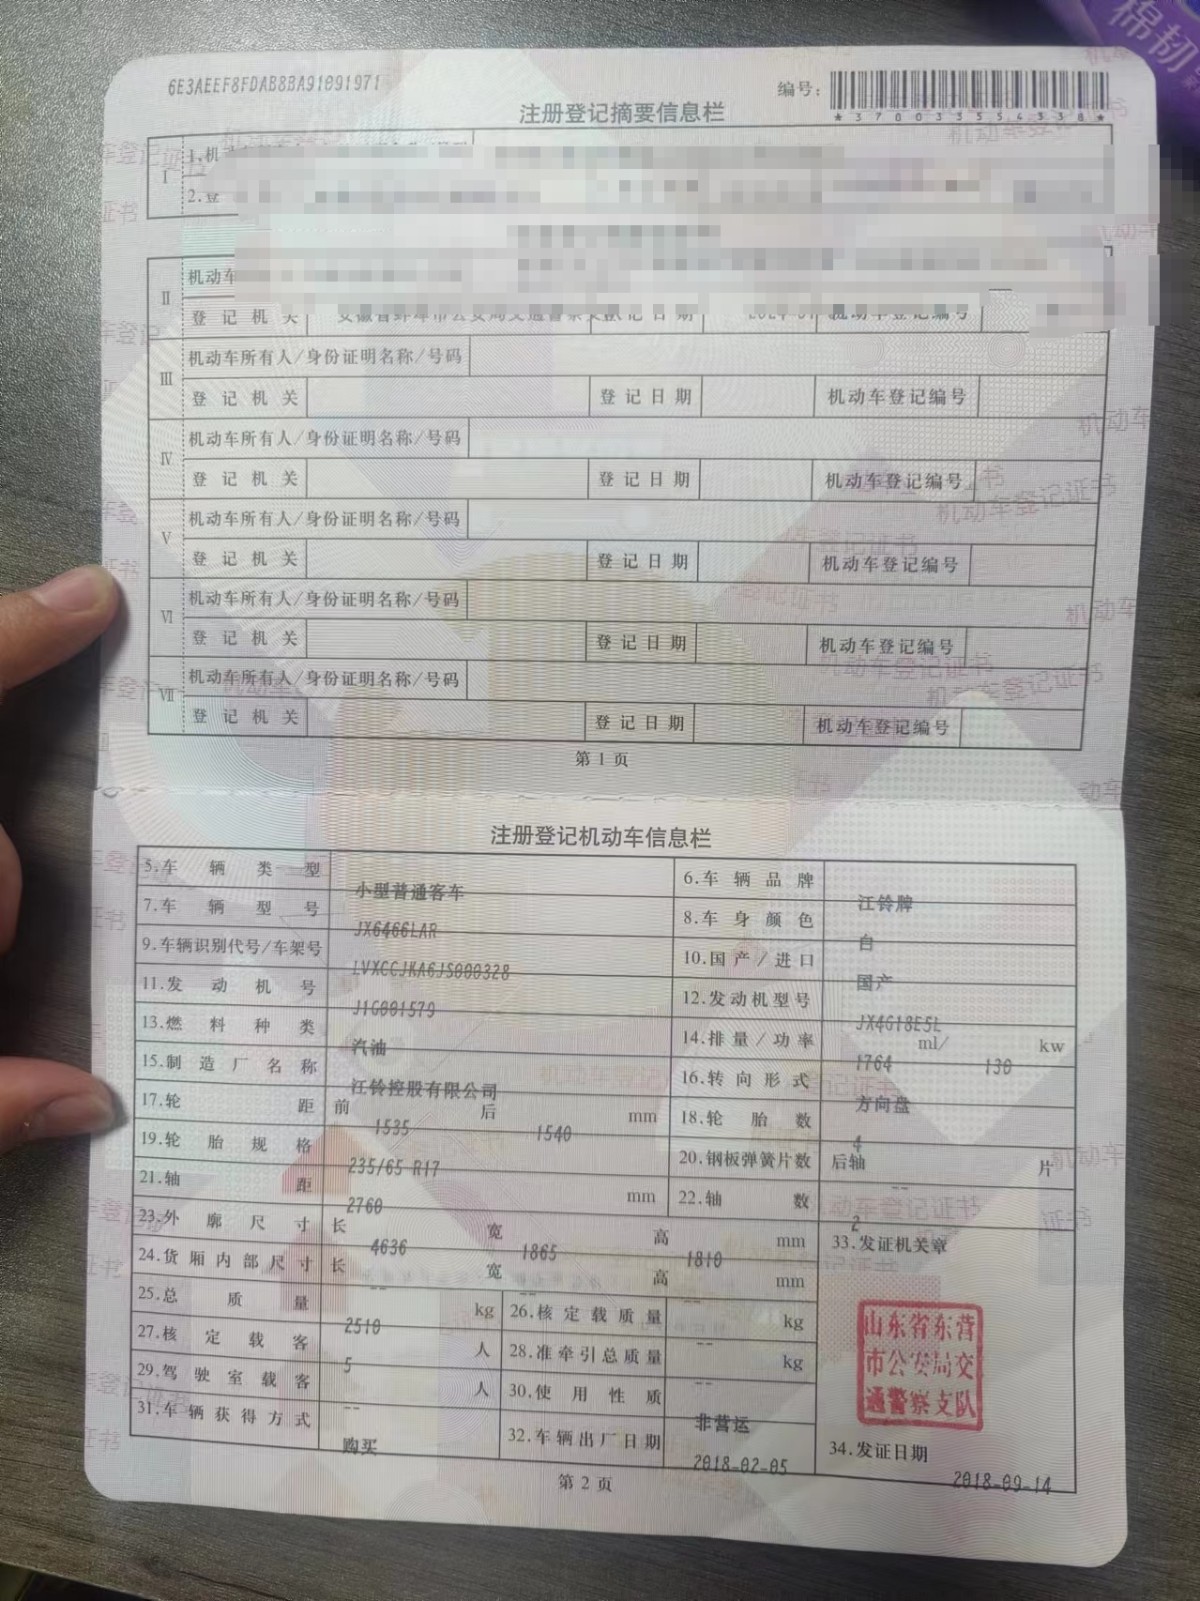 棉韧
6E3AEEF8FDAB8BA91091971
编号:
*370033554338*
注册登记摘要信息栏
I
1.机
2.登
II
机动车
登记机关 登记日期 机动车登记编号
III
机动车所有人/身份证明名称/号码
登记机关 登记日期 机动车登记编号
IV
机动车所有人/身份证明名称/号码
登记机关 登记日期 机动车登记编号
V
机动车所有人/身份证明名称/号码
登记机关 登记日期 机动车登记编号
VI
机动车所有人/身份证明名称/号码
登记机关 登记日期 机动车登记编号
VII
机动车所有人/身份证明名称/号码
登记机关 登记日期 机动车登记编号
第1页
注册登记机动车信息栏
5.车辆类型 小型普通客车 6.车辆品牌 江铃牌
7.车辆型号 JX6466LAR 8.车身颜色 白
9.车辆识别代号/车架号 LVXCCJKA6JS000328 10.国产/进口 国产
11.发动机号 J1G001579 12.发动机型号 JX4G18E5L
13.燃料种类 汽油 14.排量/功率 1764 ml/ 130 kw
15.制造厂名称 江铃控股有限公司 16.转向形式 方向盘
17.轮距 前 1535 后 1540 mm 18.轮胎数 4
19.轮胎规格 235/65 R17 20.钢板弹簧片数 后轴 -- 片
21.轴距 2760 mm 22.轴数 2
23.外廓尺寸 长 4636 宽 1865 高 1810 mm 33.发证机关章
24.货厢内部尺寸 长 -- 宽 -- 高 -- mm
25.总质量 2510 kg 26.核定载质量 -- kg
27.核定载客 5 人 28.准牵引总质量 -- kg
29.驾驶室载客 -- 人 30.使用性质 非营运
31.车辆获得方式 购买 32.车辆出厂日期 2018-02-05
山东省东营
市公安局交
通警察支队
34.发证日期 2018-09-14
第2页